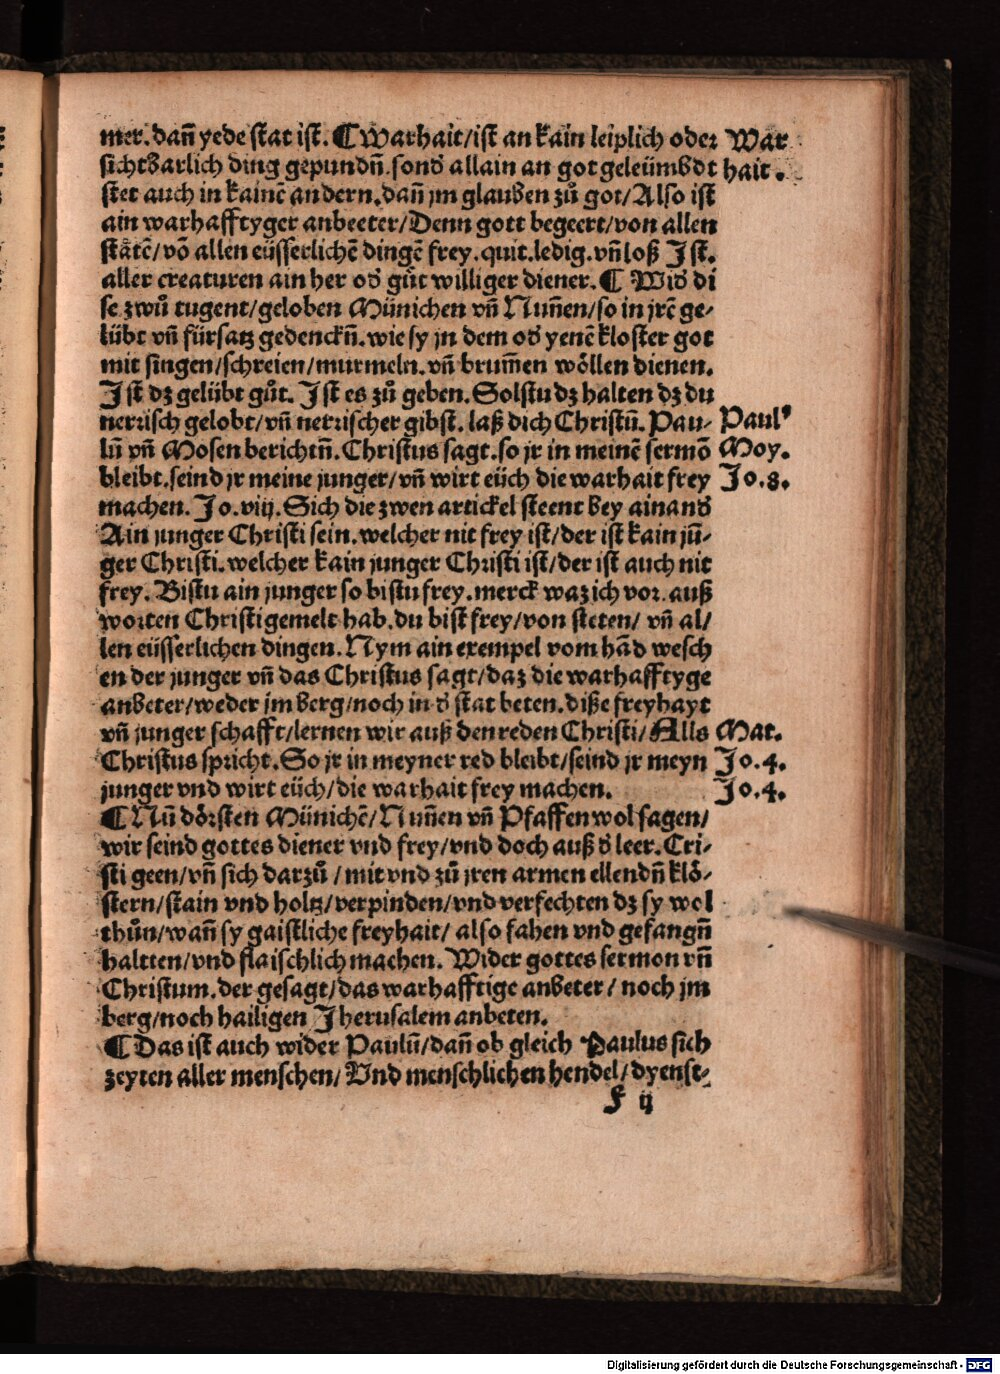 mer. dañ yede stat ist. ¶ Warhait/ist an kain leiplich oder
sichtbarlich ding gepundñ. sonđ allain an got geleümbdt
stet auch in kainē andern. dañ jm glauben zů got/Also ist
ain warhafftyger anbeeter/Denn gott begeert/von allen
stätē/vō allen eüsserlichē dingē frey. quit. ledig. vñ loß Ist.
aller creaturen ain her ođ gůt williger diener. ¶ Wiđ di
se zwů tugent/geloben Münichen vñ Nuñen/so in jrē ge-
lübt vñ fürsatz gedenckñ. wie sy jn dem ođ yenē kloster got
mit singen/schreien/murmeln. vñ brum̃en wöllen dienen.
Ist dz gelübt gůt. Ist es zů geben. Solstu dz halten dz du
nerrisch gelobt/vñ nerrischer gibst. laß dich Christū. Pau-
lū vñ Mosen berichtñ. Christus sagt. so jr in meinē sermō
bleibt. seind jr meine junger/vñ wirt eüch die warhait frey
machen. Jo. viij. Sich die zwen artickel steent bey ainanđ
Ain junger Christi sein. welcher nit frey ist/der ist kain jū-
ger Christi. welcher kain junger Christi ist/der ist auch nit
frey. Bistu ain junger so bistu frey. merck waz ich vor. auß
worten Christi gemelt hab. du bist frey/von steten/ vñ al/
len eüsserlichen dingen. Nym ain exempel vom hād wesch
en der junger vñ das Christus sagt/daz die warhafftyge
anbeter/weder jm berg/noch in đ stat beten. diße freyhayt
vñ junger schafft/lernen wir auß den reden Christi/Alls
Christus spricht. So jr in meyner red bleibt/seind jr meyn
junger vnd wirt eüch/die warhait frey machen.
¶ Nū dörsten Münichē/Nuñen vñ Pfaffen wol sagen/
wir seind gottes diener vnd frey/vnd doch auß đ leer. Cri-
sti geen/vñ sich darzů/mit vnd zů jren armen ellendñ klö-
stern/stain vnd holtz/verpinden/vnd verfechten dz sy wol
thůn/wañ sy gaistliche freyhait/ also fahen vnd gefangñ
haltten/vnd flaischlich machen. Wider gottes sermon vñ
Christum. der gesagt/das warhafftige anbeter/ noch jm
berg/noch hailigen Jherusalem anbeten.
¶ Das ist auch wider Paulū/dañ ob gleich Paulus sich
zeyten aller menschen/ Vnd menschlichen hendel/dyenst-
f ij
War
hait.
Paul⁹
Moy.
Jo. 8.
Mat.
Jo. 4.
Jo. 4.
Digitalisierung gefördert durch die Deutsche Forschungsgemeinschaft - DFG